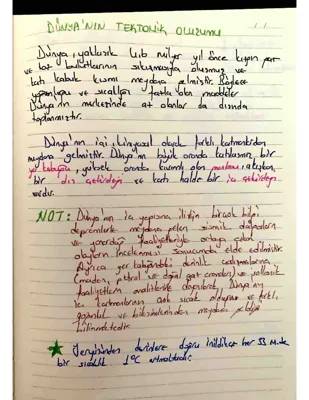 DÜNYA'NIN TEKTONİK OLUŞUMU
Dünya, yaklaşık 4,6 milyar yıl önce kızgın gaz
ve toz bulutlarının sıkışmasıyla oluşmuş ve
katı kabuk kısmı meydana gelmiştir. Böylece
yoğunluğu ve sıcaklığı fazla olan maddeler
Dünya'nın merkezinde az olanlar da dışında
toplanmıştır.
Dünya'nın içi, kimyasal olarak farklı katmanlardan
meydana gelmiştir. Dünya'nın büyük oranda katılaşmış bir
yer kabuğu, yüksek oranda kıvamlı olan mantosu, akışkan
bir dış çekirdeği ve katı halde bir iç çekirdeği
vardır.
NOT: Dünya'nın iç yapısına ilişkin birçok bilgi
depremlerle meydana gelen sismik dalgaların
ve yanardağ faaliyetleriyle ortaya çıkan
olayların incelenmesi sonucunda elde edilmiştir.
Ayrıca yer kabuğundaki derinlik çalışmalarına
(maden, petrol ve doğal gaz aramaları) ve volkanik
faaliyetlerin analizlerine dayanılarak, Dünya'nın
iç katmanlarının çok sıcak olduğu ve farklı
yoğunluk ve bileşimlerinden meydana geldiği
bilinmektedir.
★ Yeryüzünden derinlere doğru inildikçe her 33 M.de
bir sıcaklık 1°C artmaktadır.